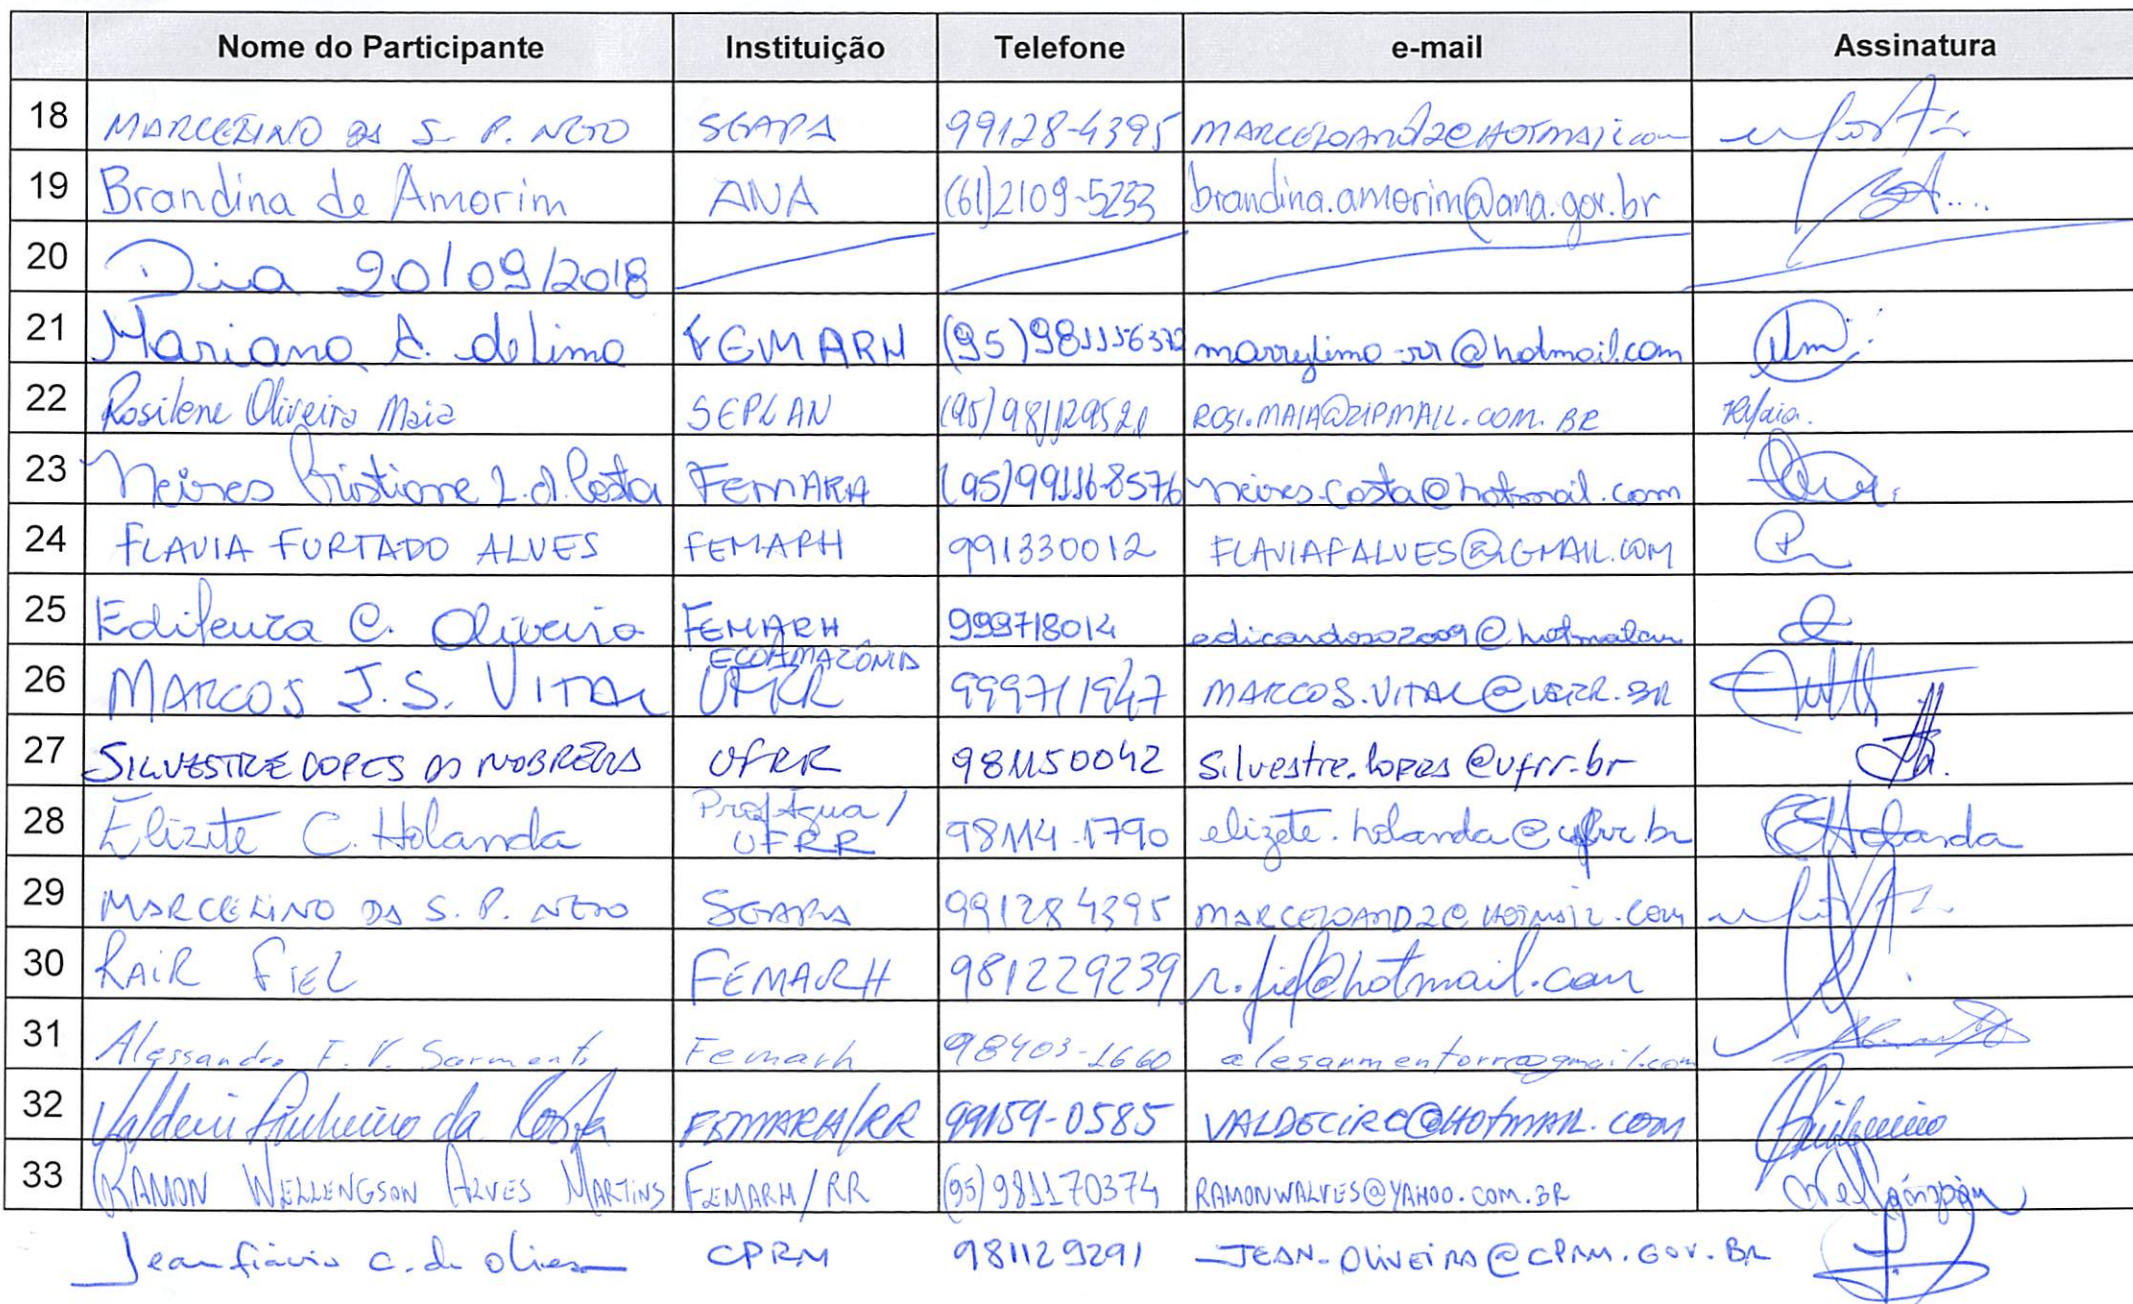 Nome do Participante Instituição Telefone e-mail Assinatura
18 MARCELINO DA S. P. NETO SEAPA 99128-4395 MARCELOAND2@HOTMAIL.com
19 Brandina de Amorim ANA (61)2109-5233 brandina.amorim@ana.gov.br
20 Dia 20/09/2018
21 Mariano A. de Lima FEMARH (95)981156372 marrylima-rr@hotmail.com
22 Rosilene Oliveira Maia SEPLAN (95)981129521 ROSI.MAIA@ZIPMAIL.COM.BR RMaia.
23 Neires Cristiane L. d. Costa FEMARH (95)99116-8576 neires.costa@hotmail.com
24 FLAVIA FURTADO ALVES FEMARH 991330012 FLAVIAFALVES@GMAIL.COM
25 Edileuza C. Oliveira FEMARH 999718014 edicardoso2009@hotmail.com
26 MARCOS J.S. VITAL ECOAMAZÔNIA
UFRR 999711947 MARCOS.VITAL@UFRR.BR
27 SILVESTRE LOPES DA NOBREGA UFRR 981150042 silvestre.lopes@ufrr.br
28 Elizete C. Holanda ProfÁgua/
UFRR 98114-1790 elizete.holanda@ufrr.br EHolanda
29 MARCELINO DA S. P. NETO SEAPA 991284395 MARCELOAND2@HOTMAIL.COM
30 RAIR FIEL FEMARH 981229239 r.fiel@hotmail.com
31 Alessandro F. V. Sarmento Femarh 98403-1660 alesarmentorr@gmail.com
32 Valdecir Pinheiro da Costa FEMARH/RR 99159-0585 VALDECIRC@HOTMAIL.COM Pinheiro
33 RAMON WELLENGSON ALVES MARTINS FEMARH/RR (95)981170374 RAMONWALVES@YAHOO.COM.BR
Jean Flávio C. de Oliveira CPRM 981129291 JEAN.OLIVEIRA@CPRM.GOV.BR